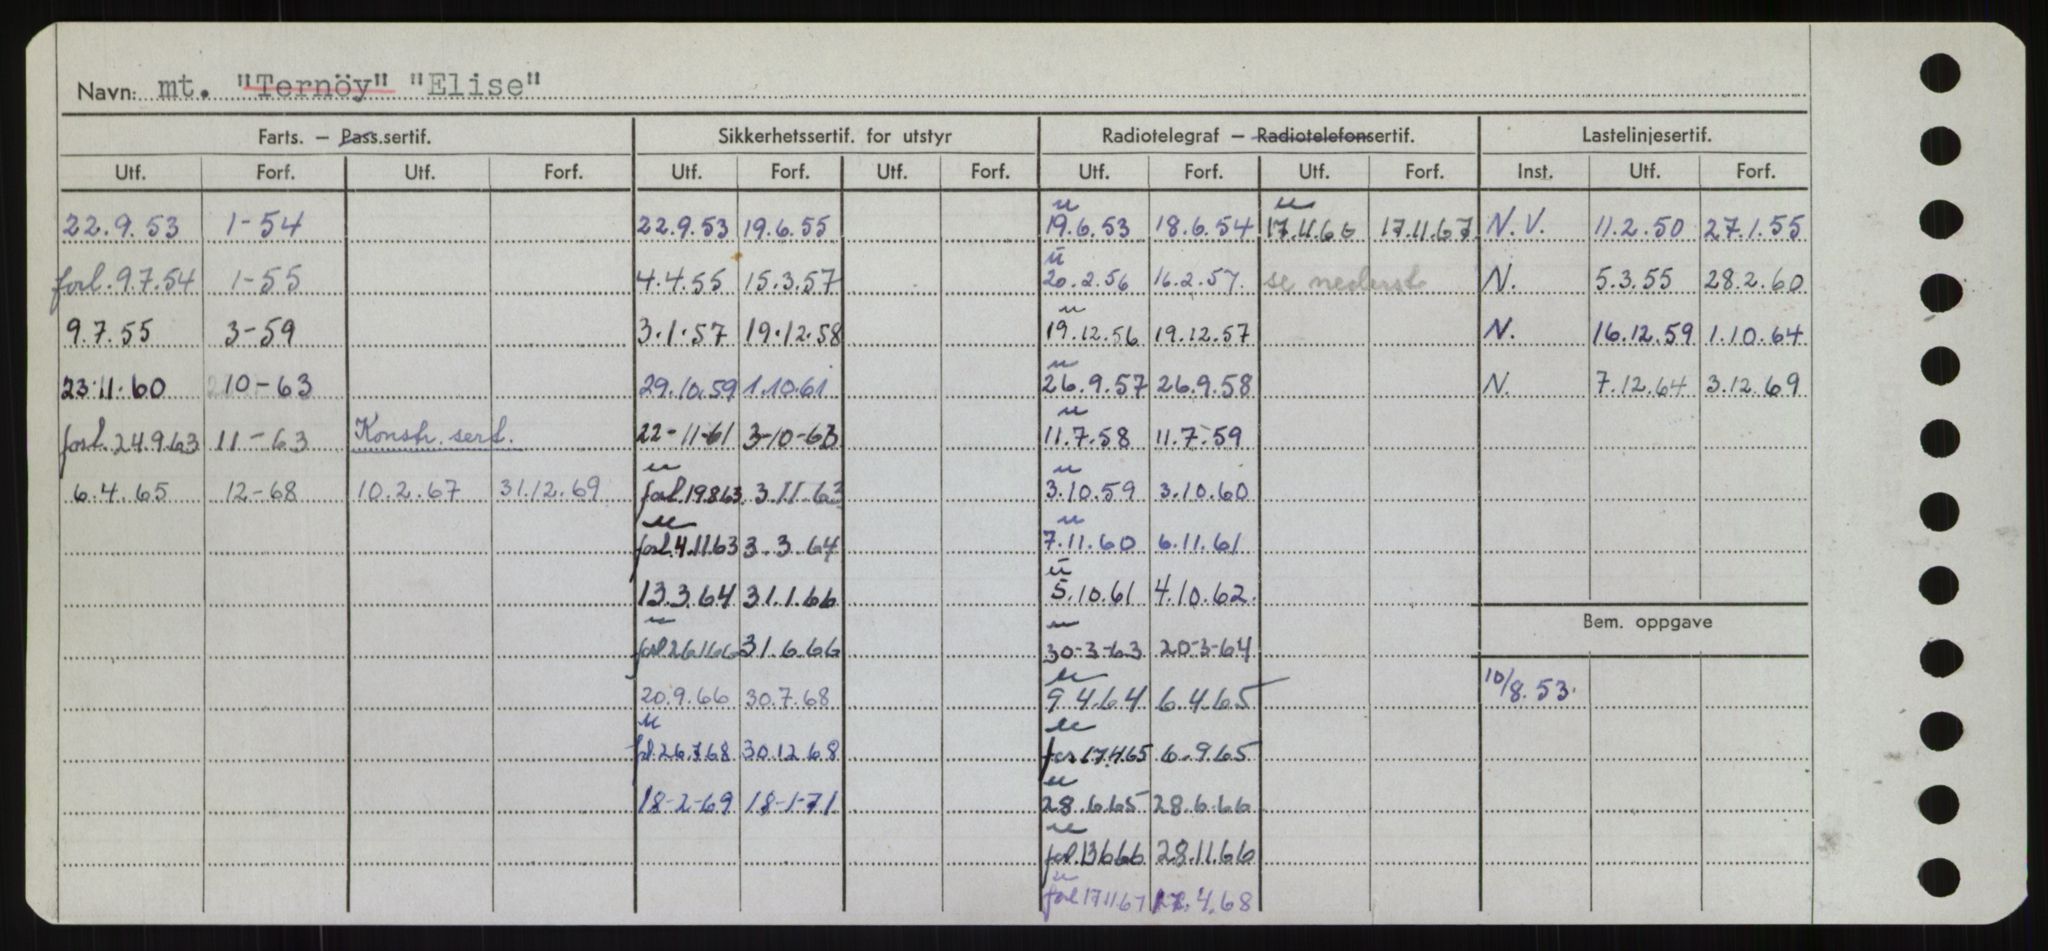 Navn: mt. "Ternöy" "Elise"
Farts. — Pass.sertif. Sikkerhetssertif. for utstyr Radiotelegraf — Radiotelefonsertif. Lastelinjesertif.
Utf. Forf. Utf. Forf. Utf. Forf. Utf. Forf. Utf. Forf. Utf. Forf. Inst. Utf. Forf.
u u
22.9.53 1-54 22.9.53 19.6.55 19.6.53 18.6.54 17.11.66 17.11.67 N.V. 11.2.50 27.1.55
u
forl. 9.7.54 1-55 4.4.55 15.3.57 20.2.56 16.2.57. se nederst N. 5.3.55 28.2.60
u
9.7.55 3-59 3.1.57 19.12.58 19.12.56 19.12.57 N. 16.12.59 1.10.64
u
23.11.60 10-63 29.10.59 1.10.61 26.9.57 26.9.58 N. 7.12.64 3.12.69
u
forl. 24.9.63 11-63 Konstr. sert. 22-11-61 3-10-63 11.7.58 11.7.59
u u
6.4.65 12-68 10.2.67 31.12.69 forl 19.8.63 3.11.63 3.10.59 3.10.60
u u
forl. 4.11.63 3.3.64 7.11.60 6.11.61
u
13.3.64 31.1.66 5.10.61 4.10.62.
u u
forl 26.1.66 31.6.66 30-3-63 20-3-64
u
20.9.66 30.7.68 9.4.64 6.4.65 10/8.53.
u u
fl. 26.7.68 30.12.68 for 17.4.65 6.9.65
u
18-2-69 18-1-71 28.6.65 28.6.66
u
forl. 13.6.66 28.11.66
u
forl 17.11.67 17.4.68
Bem. oppgave